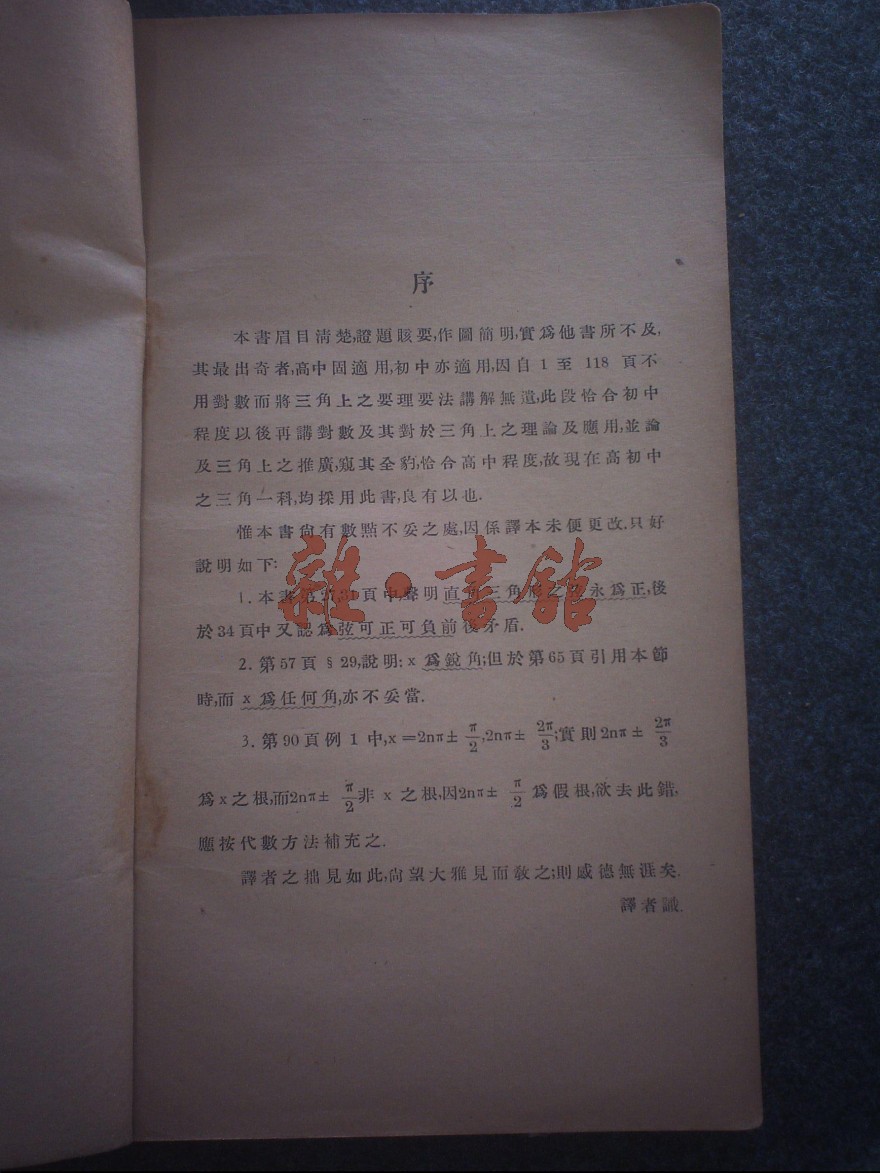 序
本書眉目清楚,證題賅要,作圖簡明,實爲他書所不及,
其最出奇者,高中固適用,初中亦適用,因自 1 至 118 頁不
用對數而將三角上之要理要法講解無遺,此段恰合初中
程度以後再講對數及其對於三角上之理論及應用,並論
及三角上之推廣,窺其全豹,恰合高中程度,故現在高初中
之三角一科,均採用此書,良有以也.
惟本書尙有數點不妥之處,因係譯本未便更改,只好
說明如下:
1. 本書第 頁中聲明直角三角形之 永爲正,後
於34頁中又認爲弦可正可負前後矛盾.
2. 第57頁 § 29,說明: x 爲銳角;但於第65頁引用本節
時,而 x 爲任何角,亦不妥當.
3. 第90頁例 1 中,x=2nπ± π/2,2nπ± 2π/3;實則2nπ± 2π/3
爲x之根,而2nπ± π/2非 x 之根,因2nπ± π/2 爲假根,欲去此錯,
應按代數方法補充之.
譯者之拙見如此,尙望大雅見而敎之;則感德無涯矣.
譯者識.
雜·書館